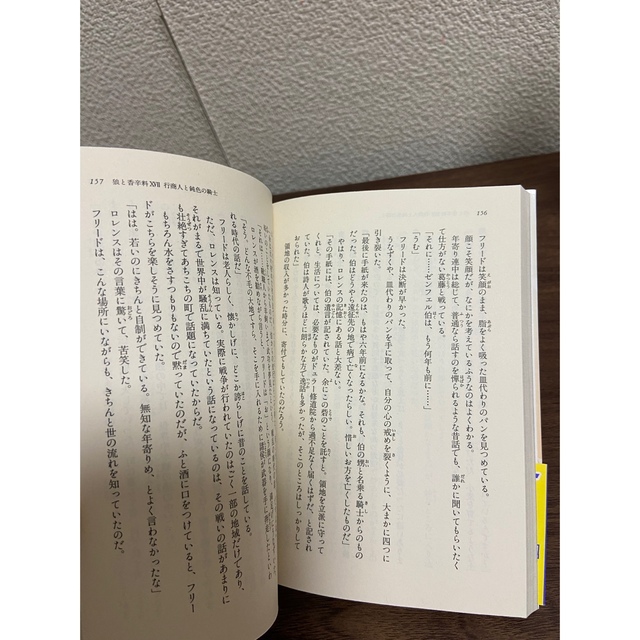 156
フリードは笑顔のまま、脂をよく吸った皿代わりのパンを見つめている。
顔こそ笑顔だが、なにかを考えているふうなのはよくわかる。
年寄り連中は総じて、普通なら話すのを憚られるような昔話でも、誰かに聞いてもらいたく
て仕方がない葛藤と戦っている。
「それに……ゼンフェル伯は、もう何年も前に……」
「うむ」
フリードは決断が早かった。
うなずくや、皿代わりのパンを手に取って、自分の心の戒めを裂くように、大まかに四つに
引き裂いた。
「最後に手紙が来たのは、もはや六年前になるかな。それも、伯の甥と名乗る騎士からのもの
だった。伯はどうやら遠征先の地で病で亡くなったらしい。惜しいお方を亡くしたものだ」
やはり、ロレンスの記憶にある話と大差ない。
「その手紙には、伯の遺言が記されていた。余にこの砦のことを託すと。領地を立派に守って
くれと。生活については、必要なものがドュラ修道院から過不足なく届くはずだ、と記され
ていた。伯は詩人が歌うほどに朗らかな方で逸話も多かったが、そこのところはしっかりして
おられた」
領地の収入が多かった時分に、寄付でもしていたのだろう。
157 狼と香辛料XVII 行商人と鈍色の騎士
ロレンスが
「そう。どんな不毛の大地ですら、そこを手に入れるために諸侯が武器を手に
れる時代の話だ」
フリードは老人らしく、懐かしげに、どこか誇らしげに昔のことを話している。
ただ、ロレンスは知っている。実際に戦争が行われていたのはごく一部の地域だけであり、
それがまるで世界中が騒乱に満ちていたという話になっているのは、その戦いの話があまりに
も壮絶すぎてあちこちの町で話題になっていたからだ。
もちろん水をさすつもりもないので黙っていたのだが、ふと酒に口をつけていると、フリー
ドがこちらを楽しそうに見つめていた。
「はは。若いのにきちんと自制ができている。無知な年寄りめ、とよく言わなかったな」
ロレンスはその言葉に驚いて、苦笑した。
フリードは、こんな場所にいながらも、きちんと世の流れを知っていたのだ。